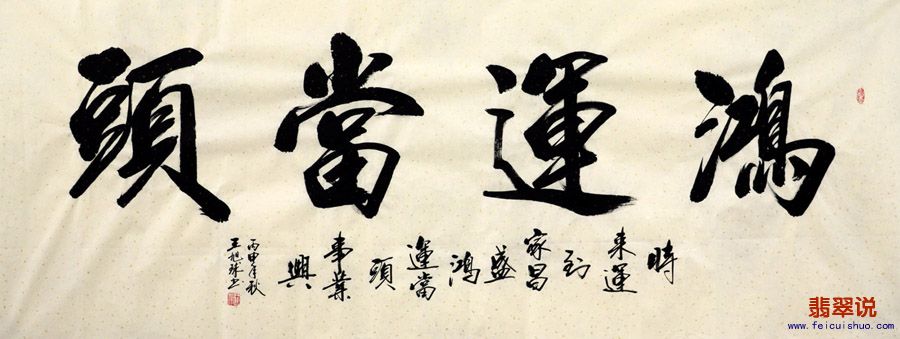 鴻運當頭
時
来運
到
家昌
盛
鴻
運當
頭
事業
興
丙申年秋
王旭球书
翡翠说
www.feicuishuo.com